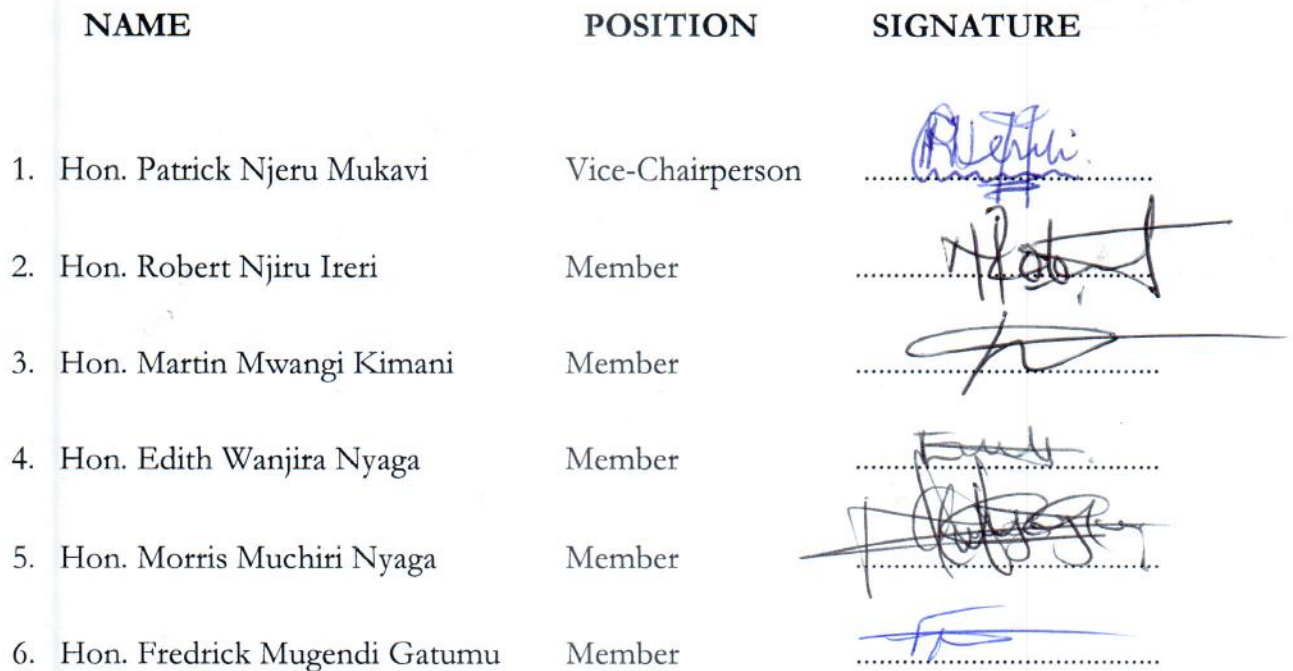 NAME POSITION SIGNATURE
1. Hon. Patrick Njeru Mukavi Vice-Chairperson ..............................
2. Hon. Robert Njiru Ireri Member ..............................
3. Hon. Martin Mwangi Kimani Member ..............................
4. Hon. Edith Wanjira Nyaga Member ..............................
5. Hon. Morris Muchiri Nyaga Member ..............................
6. Hon. Fredrick Mugendi Gatumu Member ..............................